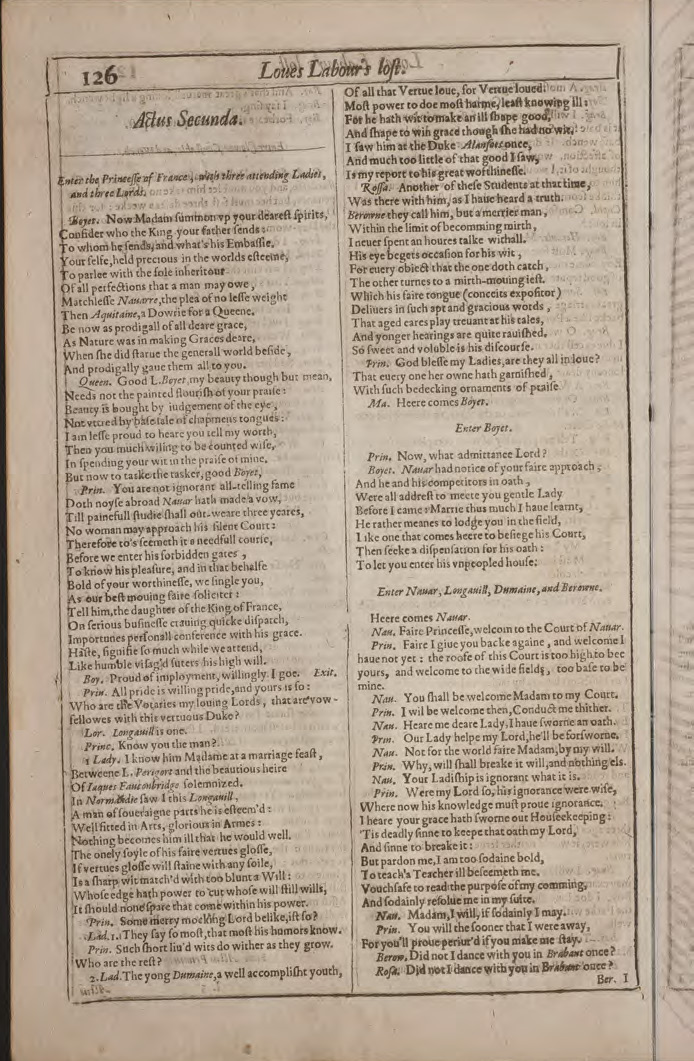 126
Loues Labour's lost.
Actus Secunda.
Enter the Princesse of France, with three attending Ladies,
and three Lords.
Boyet. Now Madam summon vp your dearest spirits,
Consider who the King your father sends:
To whom he sends, and what's his Embassie.
Your selfe, held precious in the worlds esteeme,
To parlee with the sole inheritour
Of all perfections that a man may owe,
Matchlesse Nauarre, the plea of no lesse weight
Then Aquitaine, a Dowrie for a Queene.
Be now as prodigall of all deare grace,
As Nature was in making Graces deare,
When she did starue the generall world beside,
And prodigally gaue them all to you.
Queen. Good L. Boyet, my beauty though but mean,
Needs not the painted flourish of your praise:
Beauty is bought by iudgement of the eye,
Not vttred by base sale of chapmens tongues:
I am lesse proud to heare you tell my worth,
Then you much wiling to be counted wise,
In spending your wit in the praise of mine.
But now to taske the tasker, good Boyet,
Prin. You are not ignorant all-telling fame
Doth noyse abroad Nauar hath made a vow,
Till painefull studie shall out-weare three yeares,
No woman may approach his silent Court:
Therefore to's seemeth it a needfull course,
Before we enter his forbidden gates,
To know his pleasure, and in that behalfe
Bold of your worthinesse, we single you,
As our best mouing faire soliciter:
Tell him, the daughter of the King of France,
On serious businesse crauing quicke dispatch,
Importunes personall conference with his grace.
Haste, signifie so much while we attend,
Like humble visag'd suters his high will.
Boy. Proud of imployment, willingly I goe. Exit.
Prin. All pride is willing pride, and yours is so:
Who are the Votaries my louing Lords, that are vow-
fellowes with this vertuous Duke?
Lor. Longauill is one.
Princ. Know you the man?
1 Lady. I know him Madame at a marriage feast,
Betweene L. Perigort and the beautious heire
Of Iaques Fauconbridge solemnized.
In Normandie saw I this Longauill,
A man of soueraigne parts he is esteem'd:
Well fitted in Arts, glorious in Armes:
Nothing becomes him ill that he would well.
The onely soyle of his faire vertues glosse,
If vertues glosse will staine with any soile,
Is a sharp wit match'd with too blunt a Will:
Whose edge hath power to cut whose will still wills,
It should none spare that come within his power.
Prin. Some merry mocking Lord belike, ist so?
Lad. 1. They say so most, that most his humors know.
Prin. Such short liu'd wits do wither as they grow.
Who are the rest?
2. Lad. The yong Dumaine, a well accomplisht youth,
Of all that Vertue loue, for Vertue loued.
Most power to doe most harme, least knowing ill:
For he hath wit to make an ill shape good,
And shape to win grace though she had no wit.
I saw him at the Duke Alansoes once,
And much too little of that good I saw,
Is my report to his great worthinesse.
Rossa. Another of these Students at that time,
Was there with him, as I haue heard a truth.
Berowne they call him, but a merrier man,
Within the limit of becomming mirth,
I neuer spent an houres talke withall.
His eye begets occasion for his wit,
For euery obiect that the one doth catch,
The other turnes to a mirth-mouing iest.
Which his faire tongue (conceits expositor)
Deliuers in such apt and gracious words,
That aged eares play treuant at his tales,
And yonger hearings are quite rauished.
So sweet and voluble is his discourse.
Prin. God blesse my Ladies, are they all in loue?
That euery one her owne hath garnished,
With such bedecking ornaments of praise.
Ma. Heere comes Boyet.
Enter Boyet.
Prin. Now, what admittance Lord?
Boyet. Nauar had notice of your faire approach;
And he and his competitors in oath,
Were all addrest to meete you gentle Lady
Before I came: Marrie thus much I haue learnt,
He rather meanes to lodge you in the field,
Like one that comes heere to besiege his Court,
Then seeke a dispensation for his oath:
To let you enter his vnpeopled house.
Enter Nauar, Longauill, Dumaine, and Berowne.
Heere comes Nauar.
Nau. Faire Princesse, welcom to the Court of Nauar.
Prin. Faire I giue you backe againe, and welcome I
haue not yet: the roofe of this Court is too high to bee
yours, and welcome to the wide fields, too base to be
mine.
Nau. You shall be welcome Madam to my Court.
Prin. I wil be welcome then, Conduct me thither.
Nau. Heare me deare Lady, I haue sworne an oath.
Prin. Our Lady helpe my Lord, he'll be forsworne.
Nau. Not for the world faire Madam, by my will.
Prin. Why, will shall breake it will, and nothing els.
Nau. Your Ladiship is ignorant what it is.
Prin. Were my Lord so, his ignorance were wise,
Where now his knowledge must proue ignorance.
I heare your grace hath sworne out Housekeeping:
'Tis deadly sinne to keepe that oath my Lord,
And sinne to breake it:
But pardon me, I am too sodaine bold,
To teach a Teacher ill beseemeth me.
Vouchsafe to read the purpose of my comming,
And sodainly resolue me in my suite.
Nau. Madam, I will, if sodainly I may.
Prin. You will the sooner that I were away,
For you'll proue periur'd if you make me stay.
Berow. Did not I dance with you in Brabant once?
Rosa. Did not I dance with you in Brabant once?
Ber. I